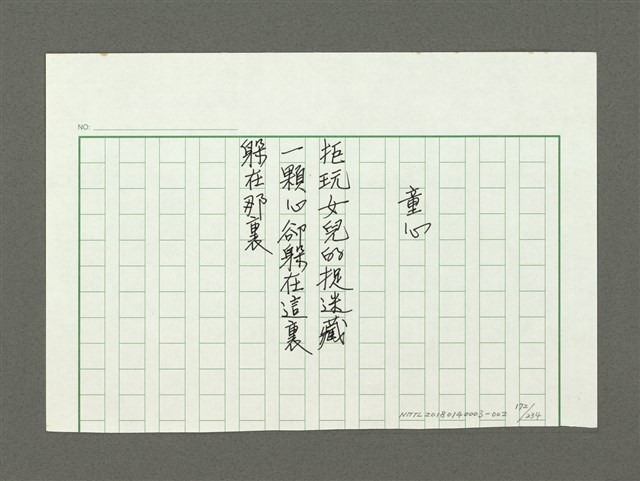 NO:
童心
拒玩女兒的捉迷藏
一顆心卻躲在這裏
躲在那裏
NMTL20180140003-002
172/234